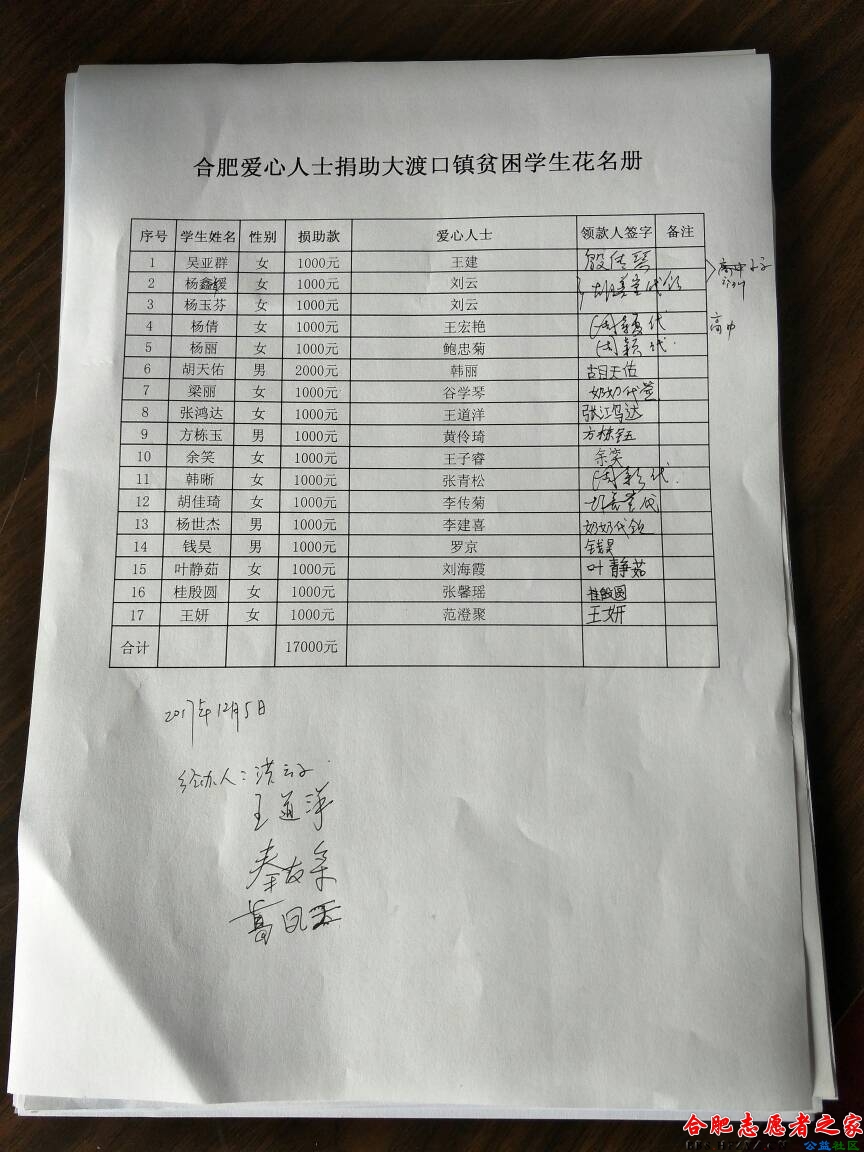 合肥爱心人士捐助大渡口镇贫困学生花名册
序号 学生姓名 性别 损助款 爱心人士 领款人签字 备注
1 吴亚群 女 1000元 王建
2 杨鑫媛 女 1000元 刘云
3 杨玉芬 女 1000元 刘云
4 杨倩 女 1000元 王宏艳 代
高中
5 杨丽 女 1000元 鲍忠菊 代
6 胡天佑 男 2000元 韩丽 胡天佑
7 梁丽 女 1000元 谷学琴 奶奶代签
8 张鸿达 女 1000元 王道洋 张鸿达
9 方栋玉 男 1000元 黄伶琦 方栋玉
10 余笑 女 1000元 王子睿 余笑
11 韩晰 女 1000元 张青松 代
12 胡佳琦 女 1000元 李传菊
13 杨世杰 男 1000元 李建喜 奶奶代领
14 钱昊 男 1000元 罗京 钱昊
15 叶静茹 女 1000元 刘海霞 叶静茹
16 桂殷圆 女 1000元 张馨瑶 桂殷圆
17 王妍 女 1000元 范澄聚 王妍
合计 17000元
2017年12月5日
经办人：洪
王道萍
秦友
葛
合肥志愿者之家
公益社区